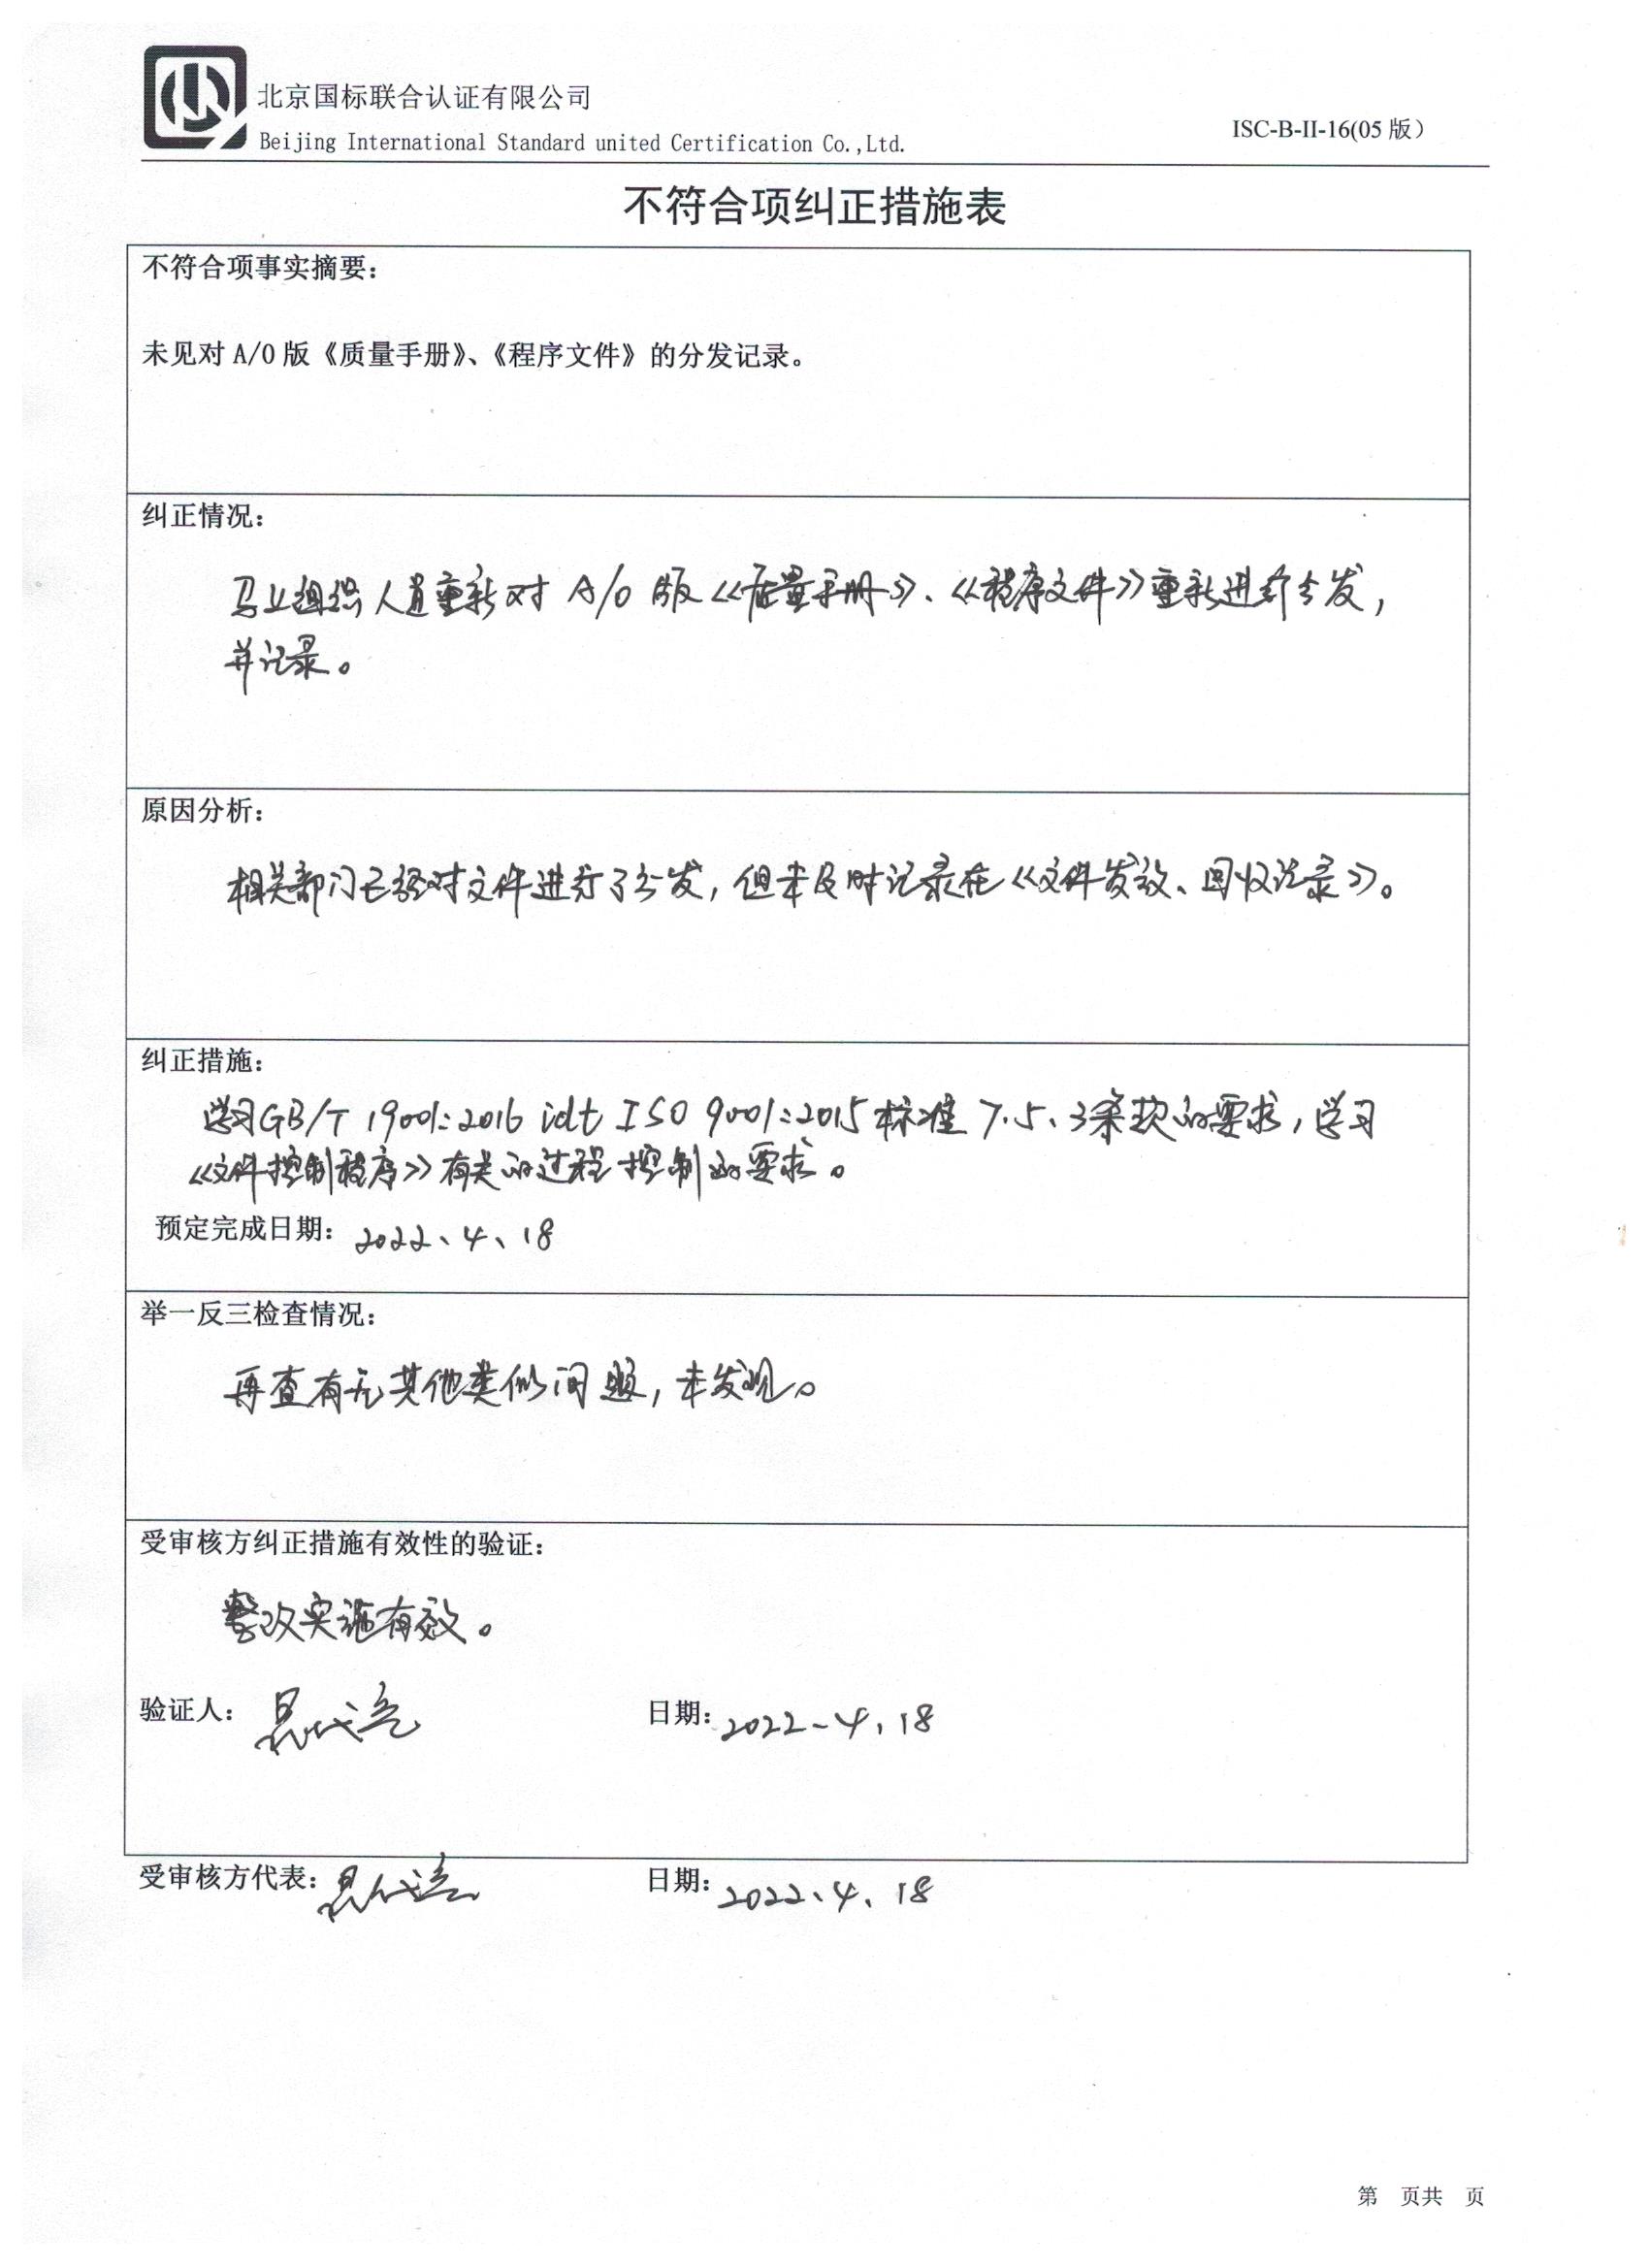 北京国标联合认证有限公司
Beijing International Standard united Certification Co.,Ltd.
ISC-B-II-16(05 版）
不符合项纠正措施表
不符合项事实摘要：
未见对 A/0 版《质量手册》、《程序文件》的分发记录。
纠正情况：
马上组织人员重新对 A/0 版《质量手册》、《程序文件》重新进行分发，
并记录。
原因分析：
相关部门已经对文件进行了分发，但未及时记录在《文件发放、回收记录》。
纠正措施：
学习GB/T 19001:2016 idt ISO 9001:2015标准 7.5.3条款的要求，学习
《文件控制程序》有关的过程控制的要求。
预定完成日期：2022、4、18
举一反三检查情况：
再查有无其他类似问题，未发现。
受审核方纠正措施有效性的验证：
整改实施有效。
验证人：
日期：2022-4、18
受审核方代表：
日期：2022、4、18
第 页共 页